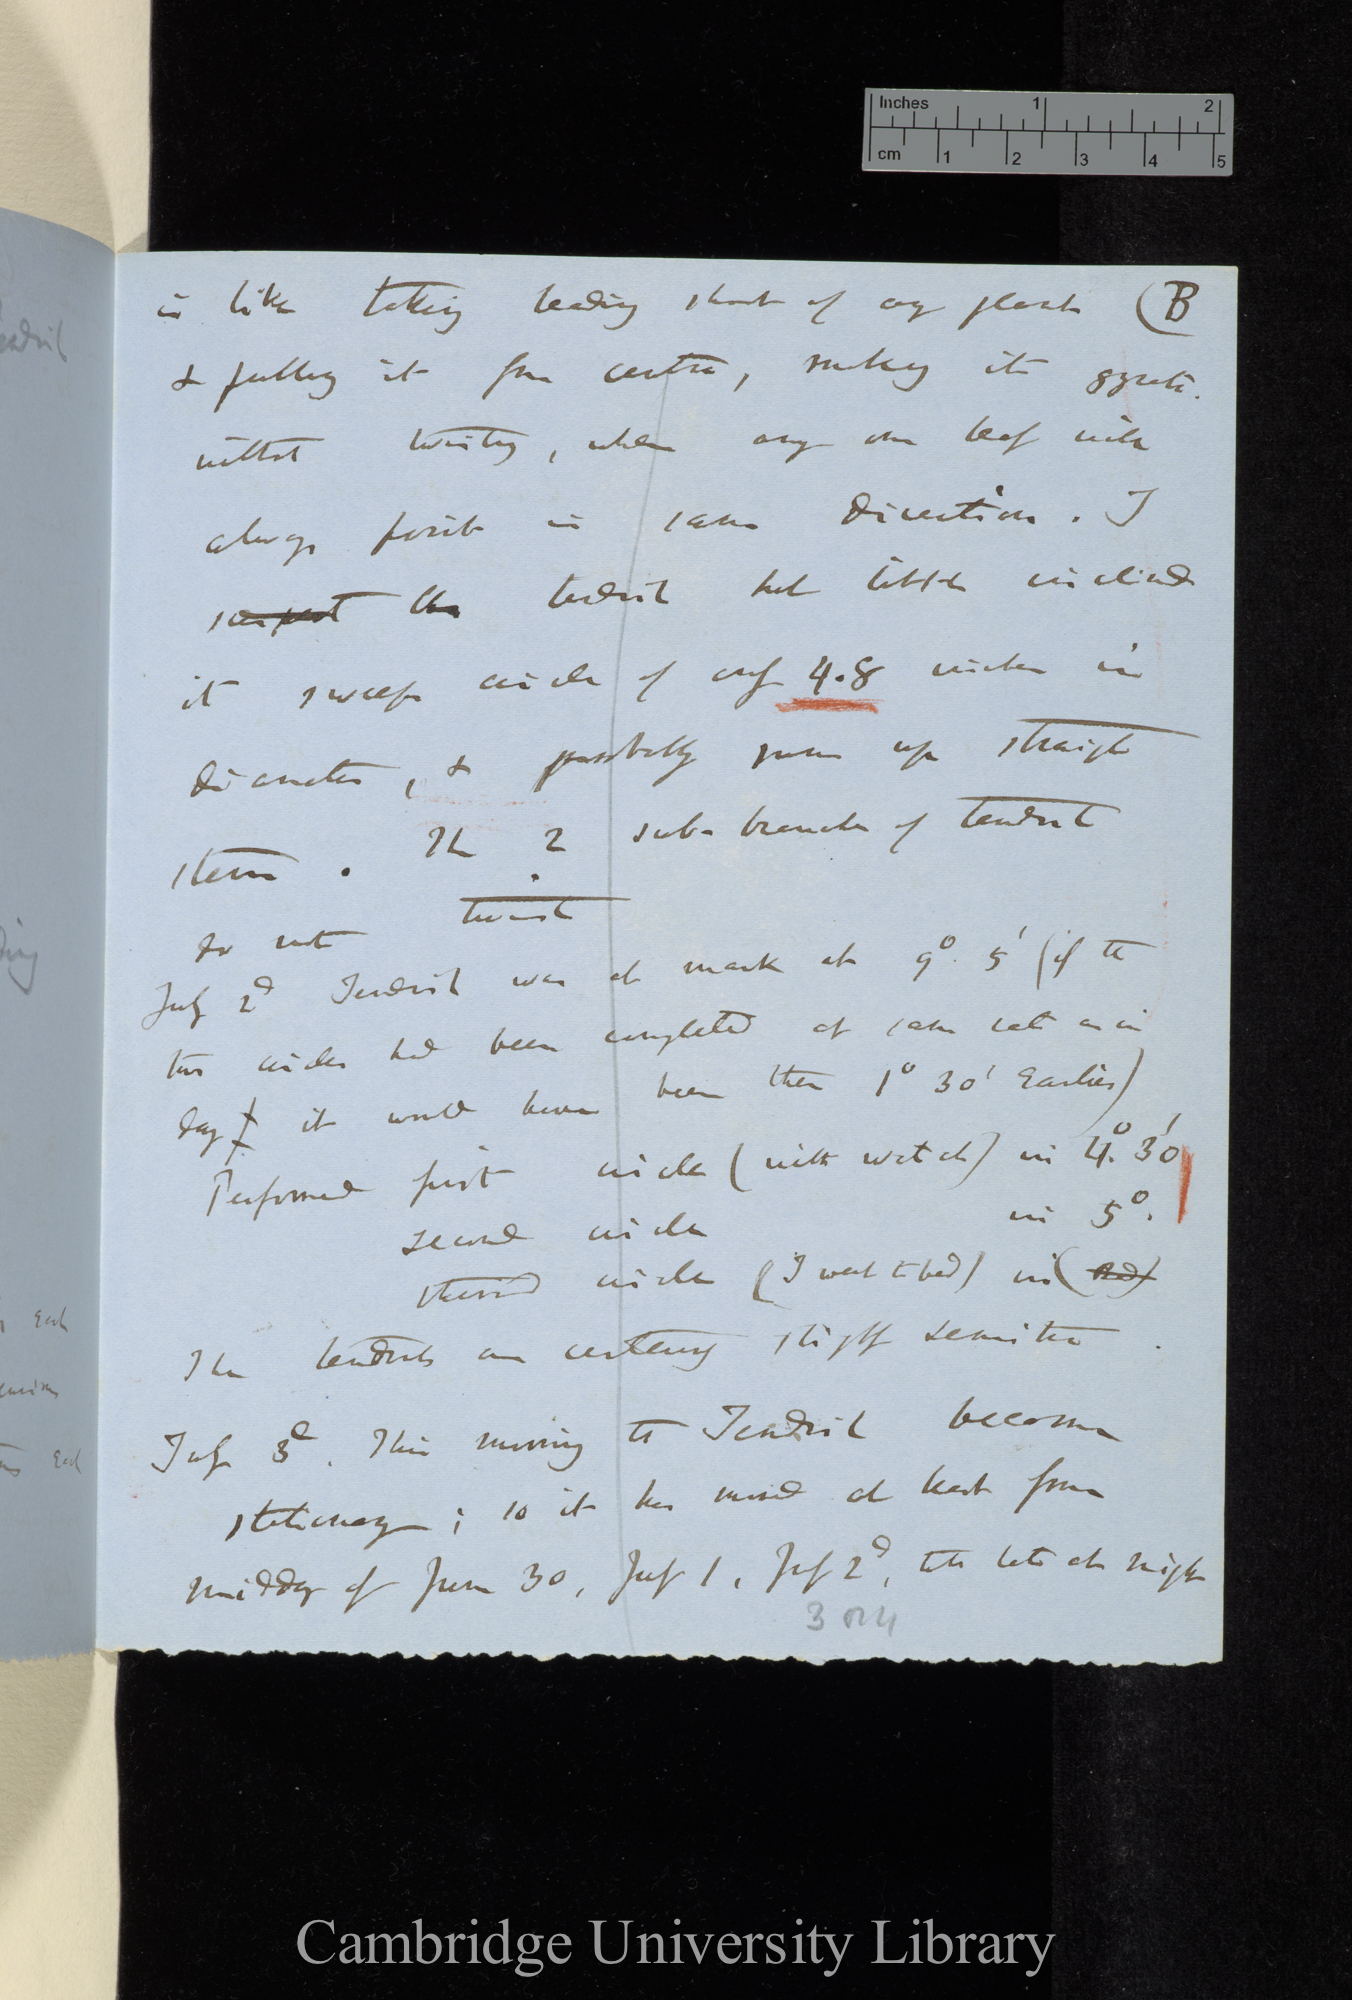 Inches 1 2
cm 1 2 3 4 5
is like taking leading shoot of any plant (B
& pulling it from centre, making it gyrate.
without twisting, when any one leaf will
always point in same direction. I
suspect the tendril but little inclined
it sweeps circle of only 4.8 inches in
diameter, & possibly runs up straight
stem. The 2 sub-branches of tendril
do not twist
July 2d Tendril was at mark at 9°. 5' (if the
two circles had been completed at same rate as in
day it would have been then 1° 30' earlier)
Performed first circle (with watch) in 4°. 30'
second circle in 5°.
third circle (I went to bed) in (
The tendrils are certainly slightly sensitive.
July 3d. This morning the Tendril become
stationary; so it has moved at least from
midday of June 30, July 1, July 2d, till late at night
3
each
Cambridge University Library